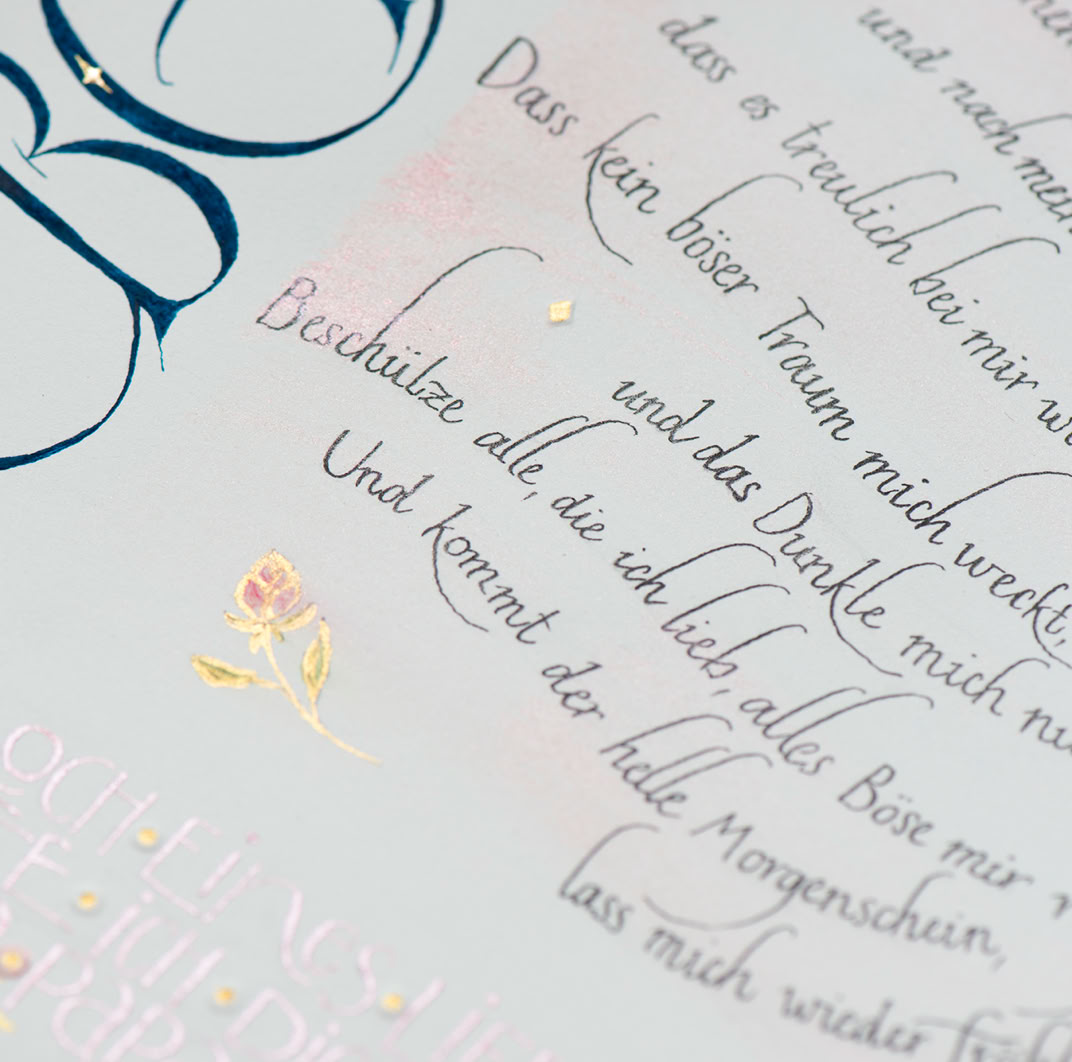 und nach mein
dass es treulich bei mir
Dass kein böser Traum mich weckt,
und das Dunkle mich
Beschütze alle, die ich lieb, alles Böse mir
Und kommt der helle Morgenschein,
lass mich wieder
och · Eines
für